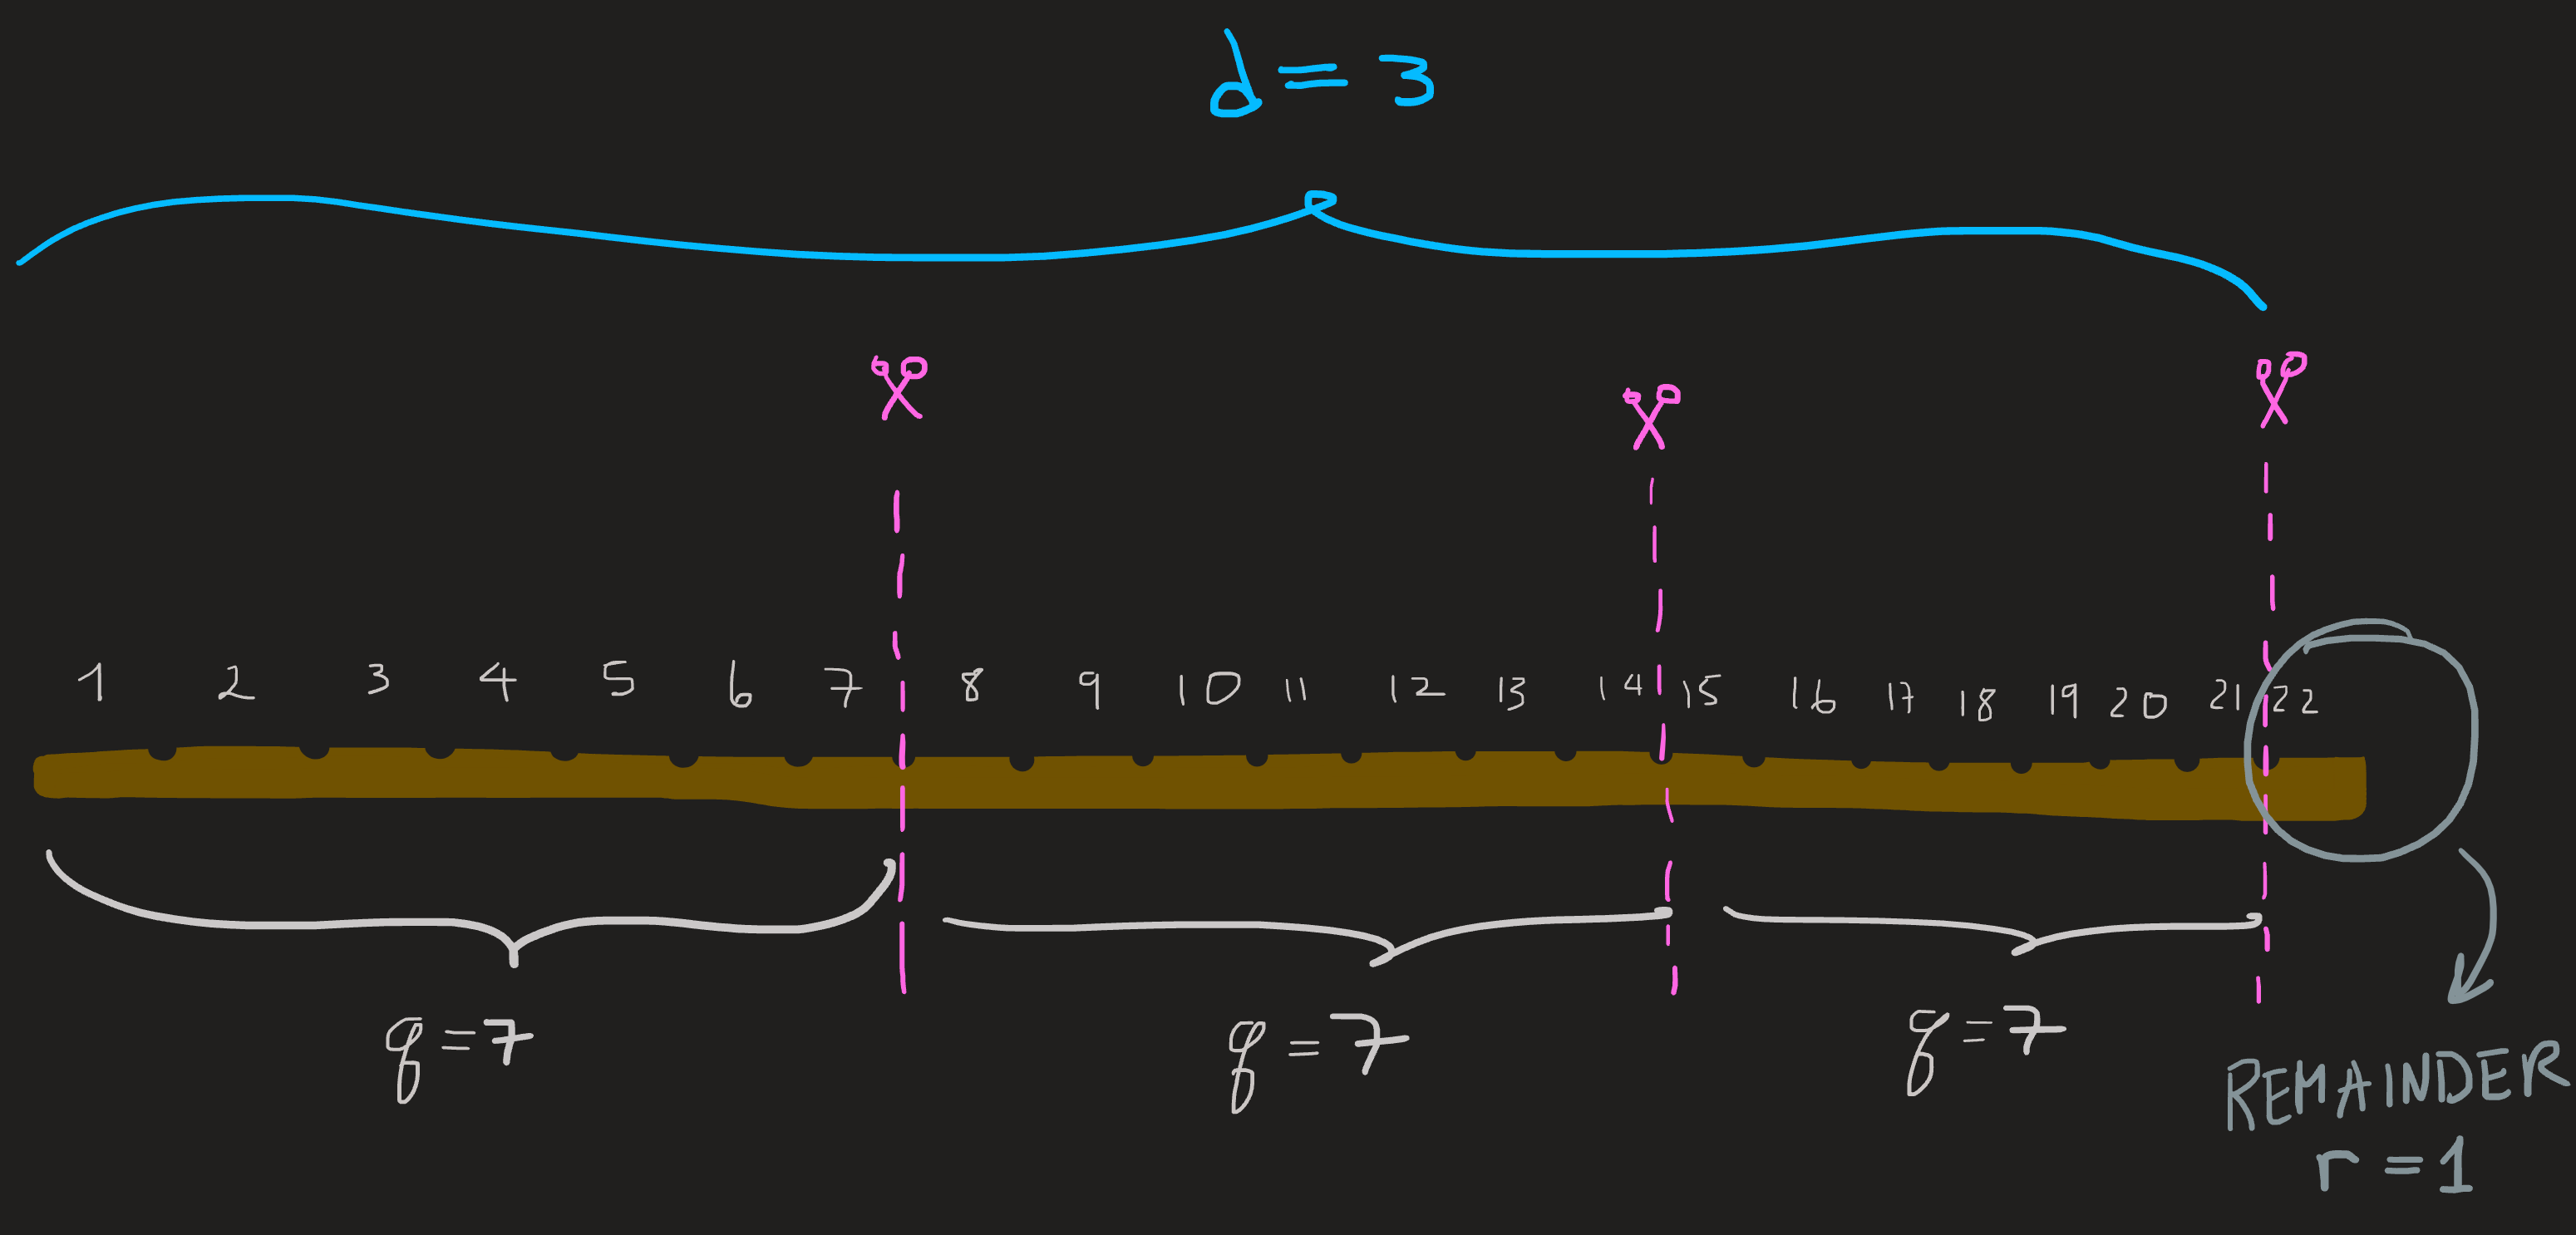 d=3
1 2 3 4 5 6 7 8 9 10 11 12 13 14 15 16 17 18 19 20 21 22
q=7 q=7 q=7
REMAINDER
r=1